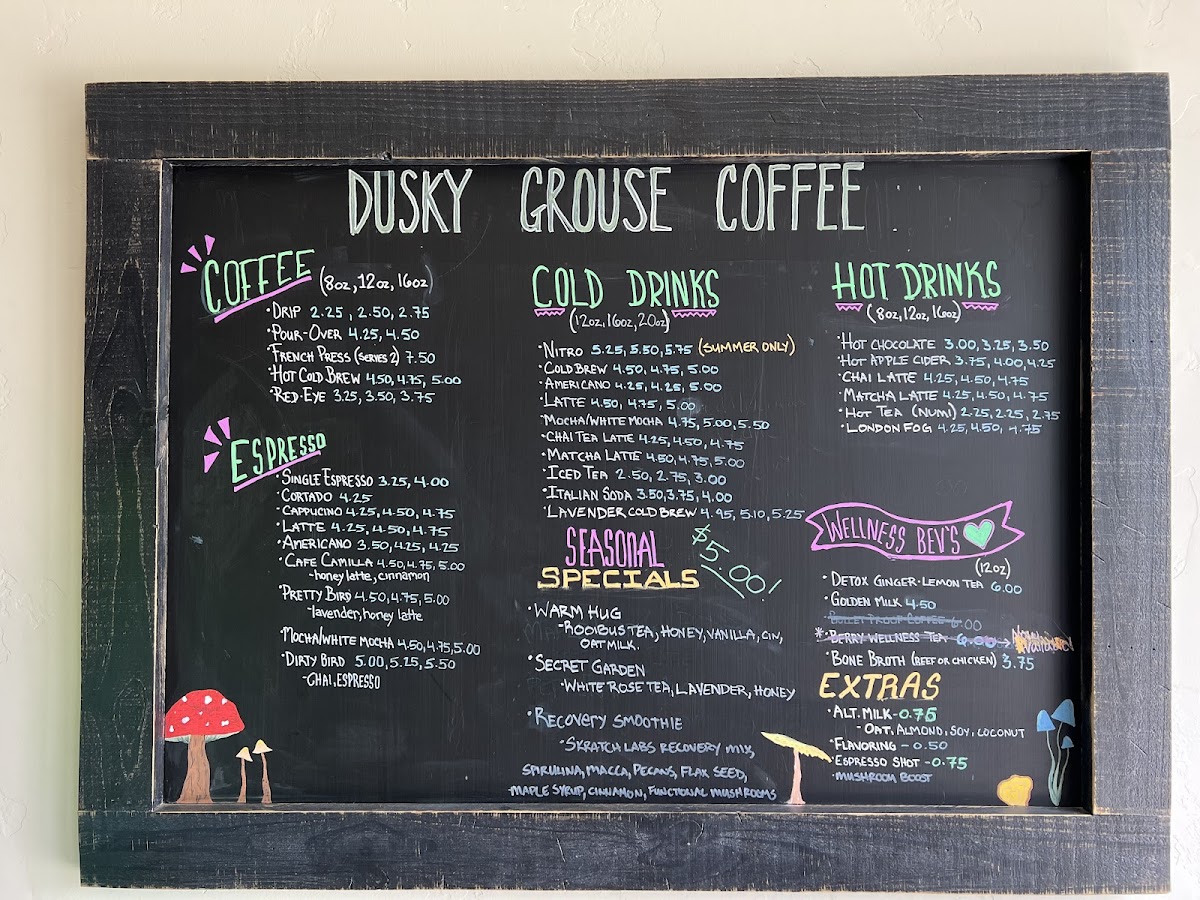 DUSKY GROUSE COFFEE
COFFEE (8oz, 12oz, 16oz)
•DRIP 2.25, 2.50, 2.75
•POUR-OVER 4.25, 4.50
•FRENCH PRESS (SERIES 2) 7.50
•HOT COLD BREW 4.50, 4.75, 5.00
•RED-EYE 3.25, 3.50, 3.75
ESPRESSO
•SINGLE ESPRESSO 3.25, 4.00
•CORTADO 4.25
•CAPPUCINO 4.25, 4.50, 4.75
•LATTE 4.25, 4.50, 4.75
•AMERICANO 3.50, 4.25, 4.25
•CAFE CAMILLA 4.50, 4.75, 5.00
-honey latte, cinnamon
•PRETTY BIRD 4.50, 4.75, 5.00
-lavender, honey latte
•MOCHA/WHITE MOCHA 4.50, 4.75, 5.00
•DIRTY BIRD 5.00, 5.25, 5.50
-CHAI, ESPRESSO
COLD DRINKS
(12oz, 16oz, 20oz)
•NITRO 5.25, 5.50, 5.75 (SUMMER ONLY)
•COLD BREW 4.50, 4.75, 5.00
•AMERICANO 4.25, 4.25, 5.00
•LATTE 4.50, 4.75, 5.00
•MOCHA/WHITE MOCHA 4.75, 5.00, 5.50
•CHAI TEA LATTE 4.25, 4.50, 4.75
•MATCHA LATTE 4.50, 4.75, 5.00
•ICED TEA 2.50, 2.75, 3.00
•ITALIAN SODA 3.50, 3.75, 4.00
•LAVENDER COLD BREW 4.95, 5.10, 5.25
SEASONAL
SPECIALS
$5.00!
•WARM HUG
-ROOIBUS TEA, HONEY, VANILLA, CIN,
OAT MILK.
•SECRET GARDEN
-WHITE ROSE TEA, LAVENDER, HONEY
•RECOVERY SMOOTHIE
-SKRATCH LABS RECOVERY MIX,
SPIRULINA, MACCA, PECANS, FLAX SEED,
MAPLE SYRUP, CINNAMON, FUNCTIONAL MUSHROOMS
HOT DRINKS
(8oz, 12oz, 16oz)
•HOT CHOCOLATE 3.00, 3.25, 3.50
•HOT APPLE CIDER 3.75, 4.00, 4.25
•CHAI LATTE 4.25, 4.50, 4.75
•MATCHA LATTE 4.25, 4.50, 4.75
•HOT TEA (NUMI) 2.25, 2.25, 2.75
•LONDON FOG 4.25, 4.50, 4.75
WELLNESS BEV'S
(12oz)
•DETOX GINGER-LEMON TEA 6.00
•GOLDEN MILK 4.50
COFFEE 6.00
*•BERRY WELLNESS TEA 6.00
•BONE BROTH (BEEF OR CHICKEN) 3.75
EXTRAS
•ALT. MILK -0.75
-OAT, ALMOND, SOY, COCONUT
•FLAVORING - 0.50
•ESPRESSO SHOT -0.75
•MUSHROOM BOOST